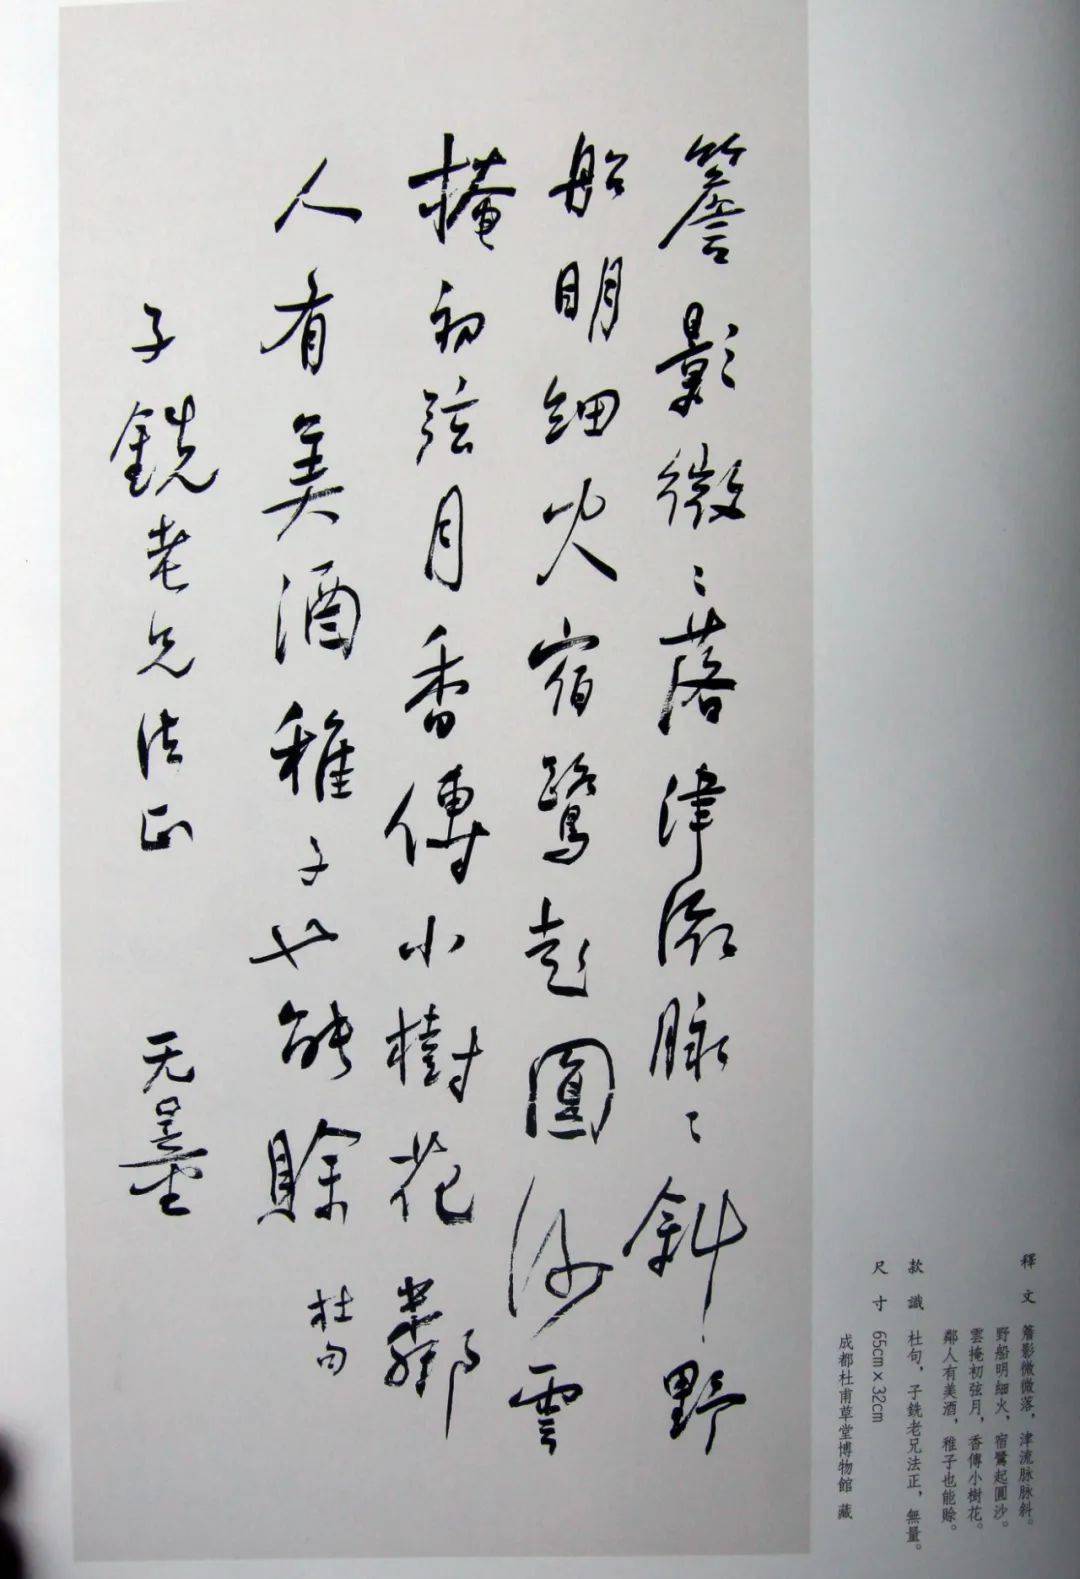 簷影微〻落津流脉〻斜野
船明細火宿鷺起圓沙雲
掩初弦月香傳小樹花鄰
人有美酒稚子也能賒
杜句
子銑老兄法正
无量
釋文 簷影微微落，津流脉脉斜。
野船明細火，宿鷺起圓沙。
雲掩初弦月，香傳小樹花。
鄰人有美酒，稚子也能賒。
款識 杜句，子銑老兄法正，無量。
尺寸 65cm×32cm
成都杜甫草堂博物館 藏